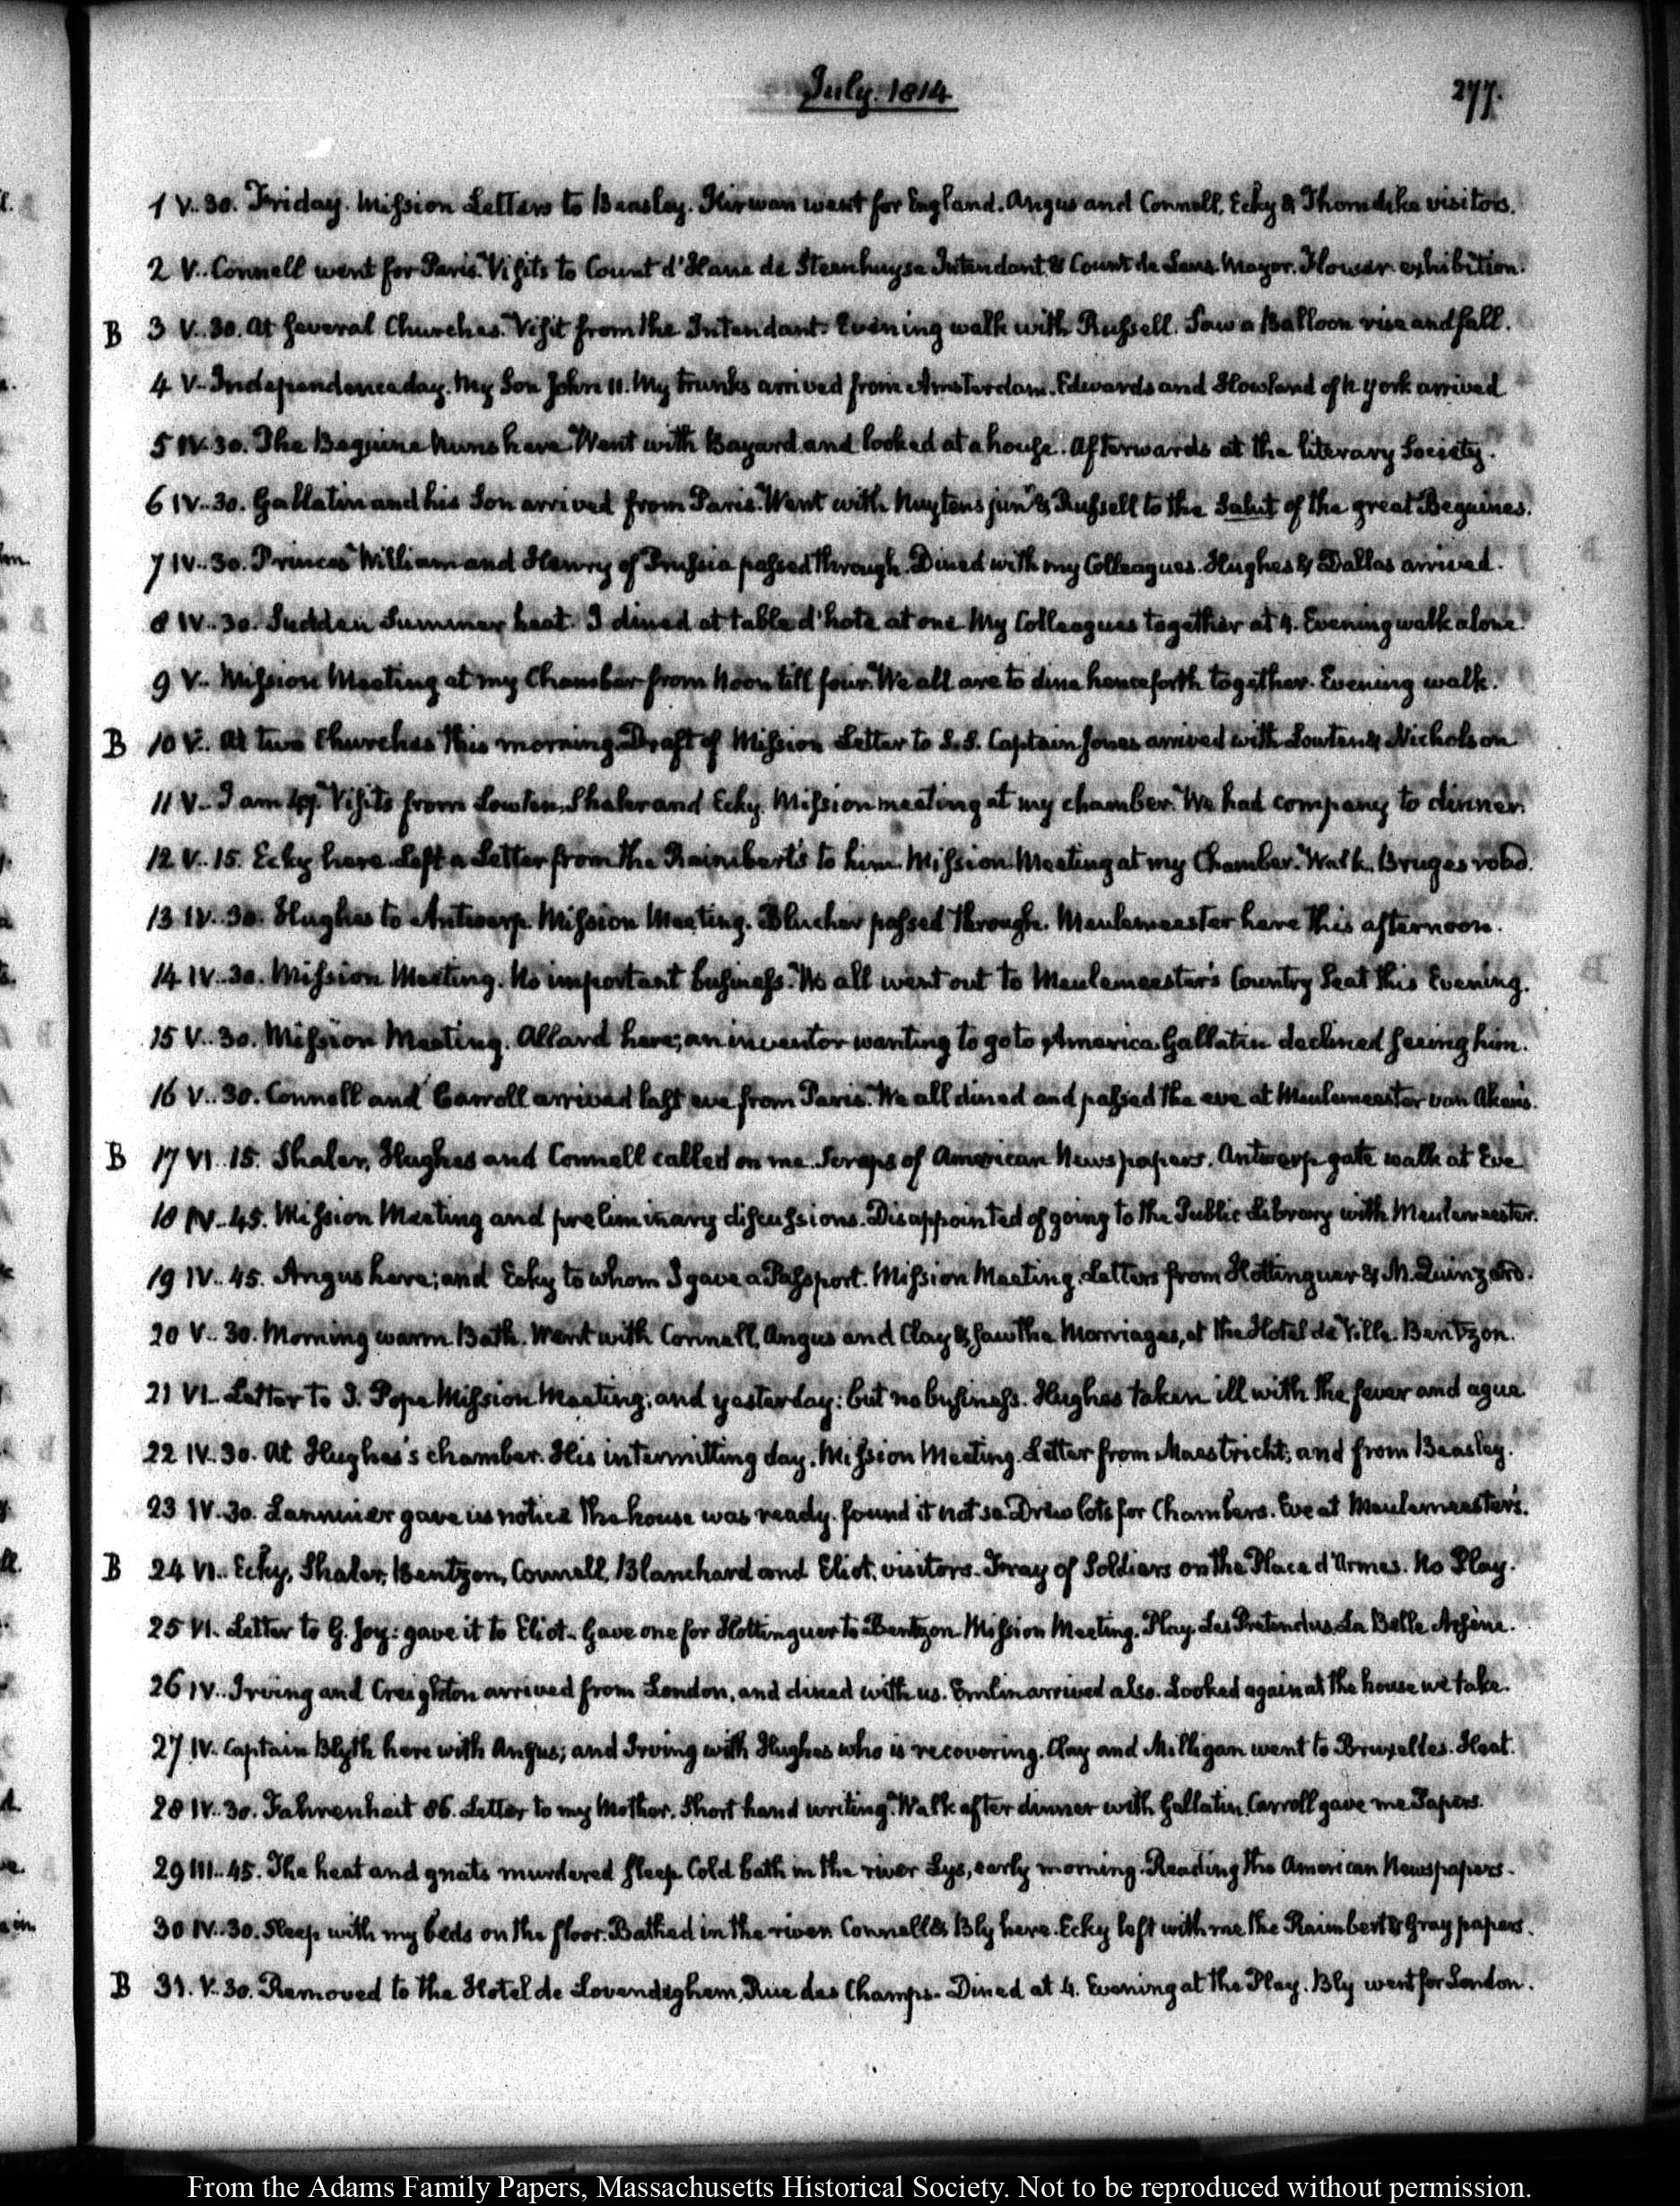 July. 1814
277.
1 V..30. Friday. Mission Letters to Beasley. Kirwan went for England. Angus and Connell, Ecky & Thorndike visitors.
2 V.. Connell went for Paris. Visits to Count d'Hane de Steenhuyse Intendant & Count de Lens Mayor. Flower exhibition.
B 3 V..30. At several Churches. Visit from the Intendant. Evening walk with Russell. Saw a Balloon rise and fall.
4 V.. Independence day. My Son John 11. My trunks arrived from Amsterdam. Edwards and Howland of N. York arrived
5 IV.30. The Beguine Nuns here. Went with Bayard and looked at a house. Afterwards at the literary Society.
6 IV..30. Gallatin and his Son arrived from Paris. Went with Nuytens junr. & Russell to the Salut of the great Beguines.
7 IV..30. Princes William and Henry of Prussia passed through. Dined with my Colleagues. Hughes & Dallas arrived.
8 IV..30. Sudden Summer heat. I dined at table d'hote at one My Colleagues together at 4. Evening walk alone.
9 V.. Mission Meeting at my Chamber from Noon till four. We all are to dine henceforth together. Evening walk.
B 10 V.. At two Churches this morning. Draft of Mission Letter to S.S. Captain Jones arrived with Lowten & Nicholson
11 V.. I am 47. Visits from Lowten, Shaler and Ecky. Mission meeting at my chamber. We had company to dinner.
12 V..15. Ecky here. Left a Letter from the Raimbert's to him. Mission Meeting at my Chamber. Walk. Bruges road.
13 IV..30. Hughes to Antwerp. Mission Meeting. Blucher passed through. Meulemeester here this afternoon.
14 IV..30. Mission Meeting. No important business. We all went out to Meulemeester's Country Seat this Evening.
15 V..30. Mission Meeting. Allard here; an inventor wanting to go to America. Gallatin declined seeing him.
16 V..30. Connell and Carroll arrived last eve from Paris. We all dined and passed the eve at Meulemeester van Aken's.
B 17 VI..15. Shaler, Hughes and Connell called on me. Scraps of American Newspapers. Antwerp gate walk at Eve
18 IV..45. Mission Meeting and preliminary discussions. Disappointed of going to the Public Library with Meulemeester.
19 IV..45. Angus here; and Ecky to whom I gave a Passport. Mission Meeting. Letters from Hottinguer & M. Quinzard.
20 V..30. Morning warm Bath. Went with Connell, Angus and Clay & saw the Marriages, at the Hotel de Ville. Bentzon.
21 VI.. Letter to I. Pope Mission Meeting; and yesterday: but no business. Hughes taken ill with the fever and ague
22 IV..30. At Hughes's chamber. His intermitting day. Mission Meeting. Letter from Maestricht; and from Beasley.
23 IV.30. Lannuier gave us notice the house was ready. found it not so. Drew lots for Chambers. Eve at Meulemeester's.
B 24 VI.. Ecky, Shaler, Bentzon, Connell, Blanchard and Eliot, visitors. Fray of Soldiers on the Place d'Armes. No Play.
25 VI. Letter to G. Joy: gave it to Eliot. Gave one for Hottinguer to Bentzon Mission Meeting. Play. Les Pretendus. La Belle Arsène.
26 IV.. Irving and Creighton arrived from London, and dined with us. Emlin arrived also. Looked again at the house we take.
27 IV. Captain Blyth here with Angus; and Irving with Hughes who is recovering. Clay and Milligan went to Bruxelles. Heat.
28 IV..30. Fahrenheit 86. Letter to my Mother. Short hand writing. Walk after dinner with Gallatin. Carroll gave me Papers.
29 III..45. The heat and gnats murdered sleep. Cold bath in the river Lys, early morning. Reading the American Newspapers.
30 IV..30. Sleep with my beds on the floor. Bathed in the river. Connell & Bly here. Ecky left with me the Raimbert & Gray papers.
B 31. V.30. Removed to the Hotel de Lovendeghem, Rue des Champs. Dined at 4. Evening at the Play. Bly went for London.
From the Adams Family Papers, Massachusetts Historical Society. Not to be reproduced without permission.